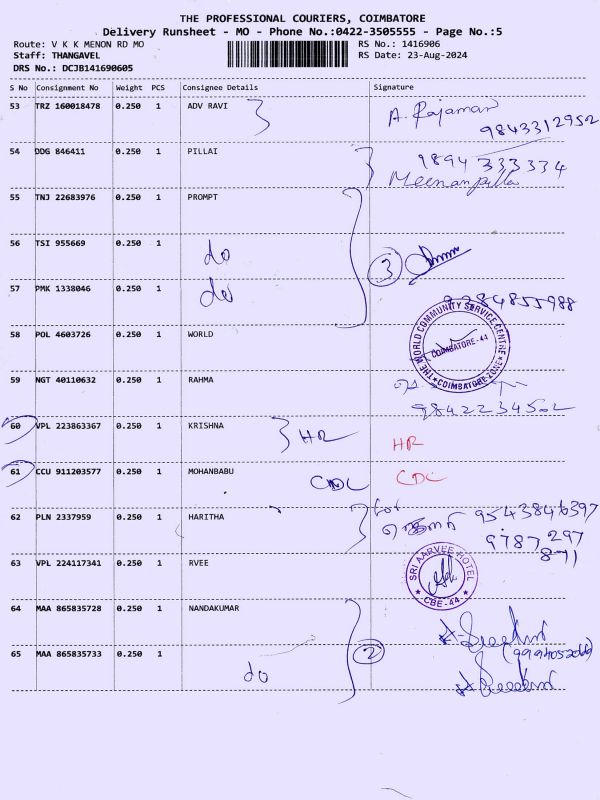 THE PROFESSIONAL COURIERS, COIMBATORE
Delivery Runsheet - MO - Phone No.:0422-3505555 - Page No.:5
Route: V K K MENON RD MO RS No.: 1416906
Staff: THANGAVEL RS Date: 23-Aug-2024
DRS No.: DCJB141690605
S No Consignment No Weight PCS Consignee Details Signature
53 TRZ 160018478 0.250 1 ADV RAVI A. Rajaman
9843312952
54 DDG 846411 0.250 1 PILLAI 9894 333334
Meenampilla
55 TNJ 22683976 0.250 1 PROMPT
56 TSI 955669 0.250 1 do 3
57 PMK 1338046 0.250 1 do 9384855988
58 POL 4603726 0.250 1 WORLD THE WORLD COMMUNITY SERVICE CENTRE
COIMBATORE-44
COIMBATORE-ZONE
59 NGT 40110632 0.250 1 RAHMA
60 VPL 223863367 0.250 1 KRISHNA HR HR
61 CCU 911203577 0.250 1 MOHANBABU CDC CDC
62 PLN 2337959 0.250 1 HARITHA 9543846397
9787 297
871
63 VPL 224117341 0.250 1 RVEE SRI AARVEE HOTEL
CBE-44
64 MAA 865835728 0.250 1 NANDAKUMAR
65 MAA 865835733 0.250 1 do 2